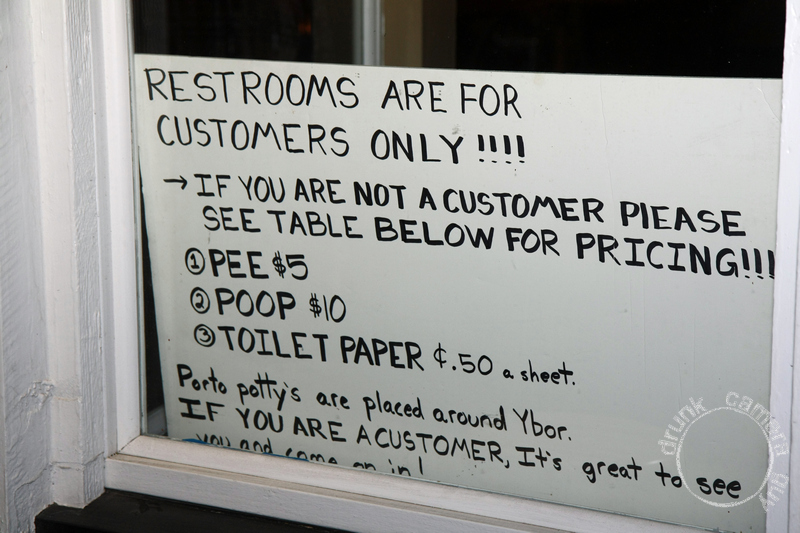 RESTROOMS ARE FOR
CUSTOMERS ONLY !!!!
→ IF YOU ARE NOT A CUSTOMER PLEASE
SEE TABLE BELOW FOR PRICING!!!
① PEE $5
② POOP $10
③ TOILET PAPER ¢.50 a sheet.
Porto potty's are placed around Ybor.
IF YOU ARE A CUSTOMER, It's great to see
you and come on in!
drunk camera guy